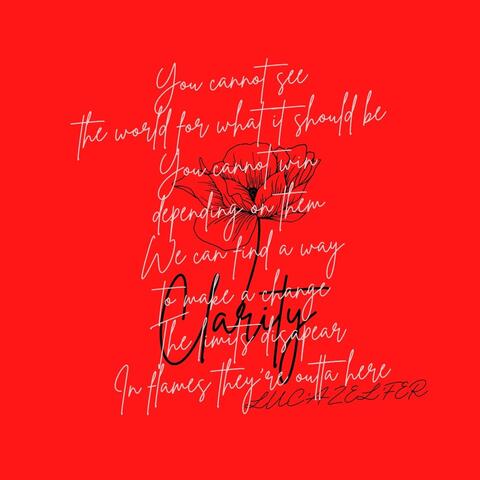 You cannot see
the world for what it should be
You cannot win
depending on them
We can find a way
to make a change
Clarity
The limits disapear
In flames they're outta here
LUCAZELFER